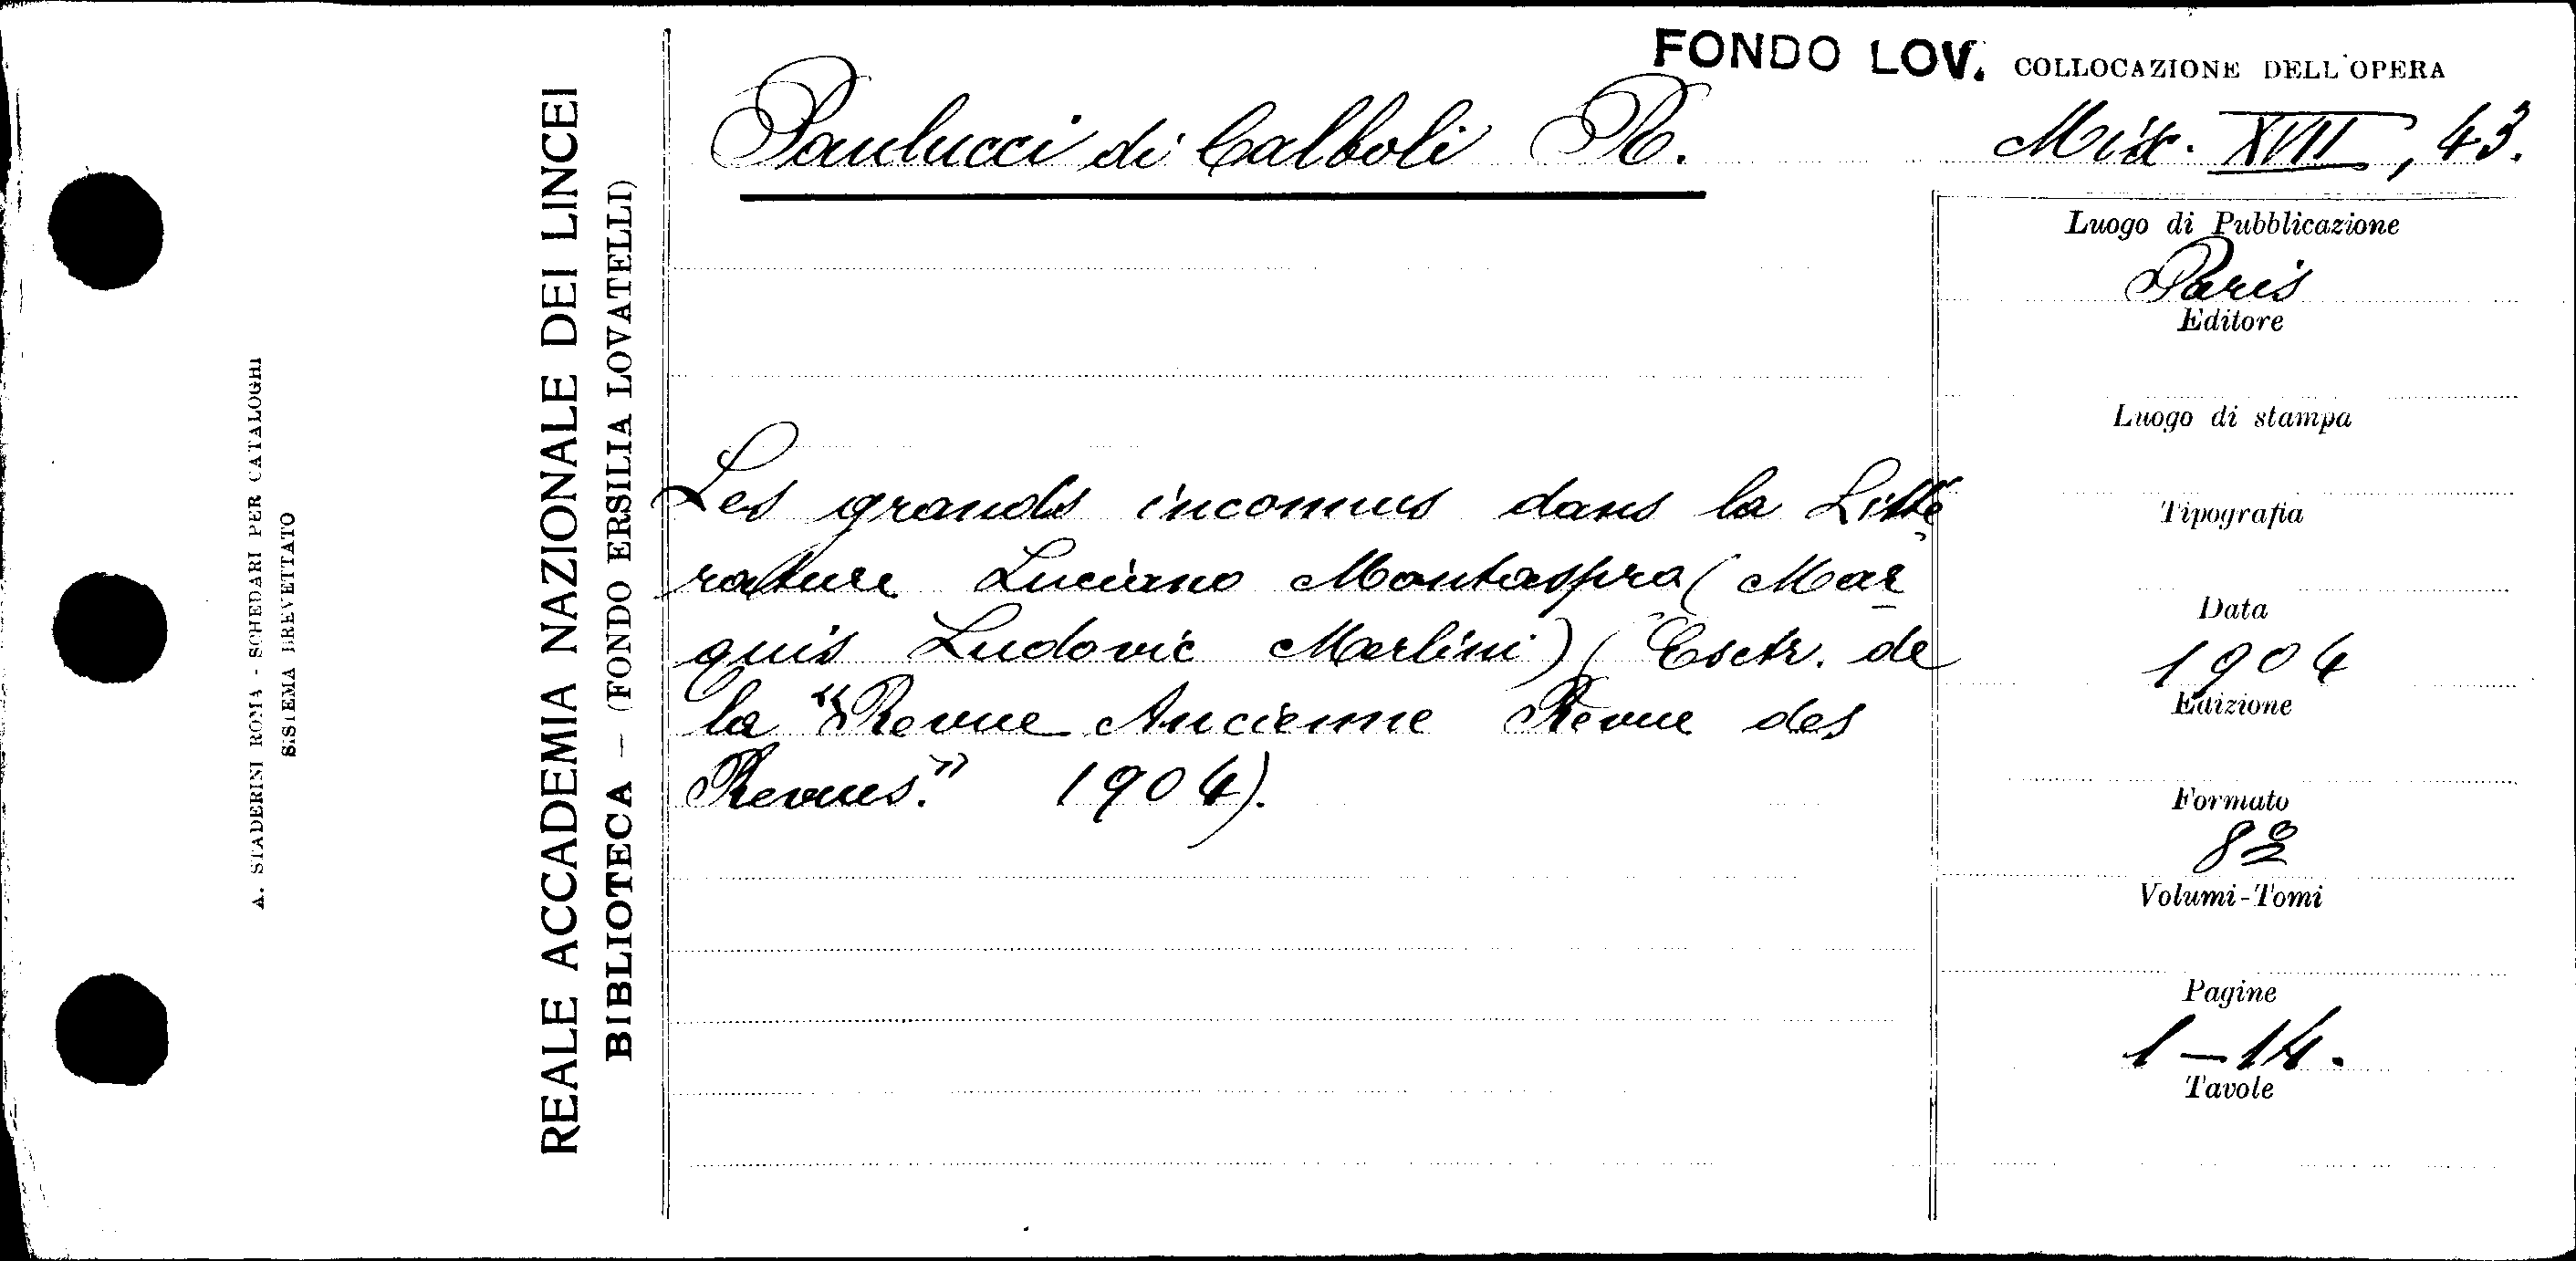 FONDO LOV.
COLLOCAZIONE DELL'OPERA
Paulucci di Calboli R.
Misc. XVII, 43.
Les grands inconnus dans la Litté
rature Luciano Montaspro (Mar
quis Ludovic Merlini) (Esctr. de
la "Revue Ancienne Revue des
Revues." 1904).
Luogo di Pubblicazione
Paris
Editore
Luogo di stampa
Tipografia
Data
1904
Edizione
Formato
8º
Volumi-Tomi
Pagine
1-14.
Tavole
REALE ACCADEMIA NAZIONALE DEI LINCEI
BIBLIOTECA - (FONDO ERSILIA LOVATELLI)
A. STADERINI ROMA - SCHEDARI PER CATALOGHI
SISTEMA BREVETTATO